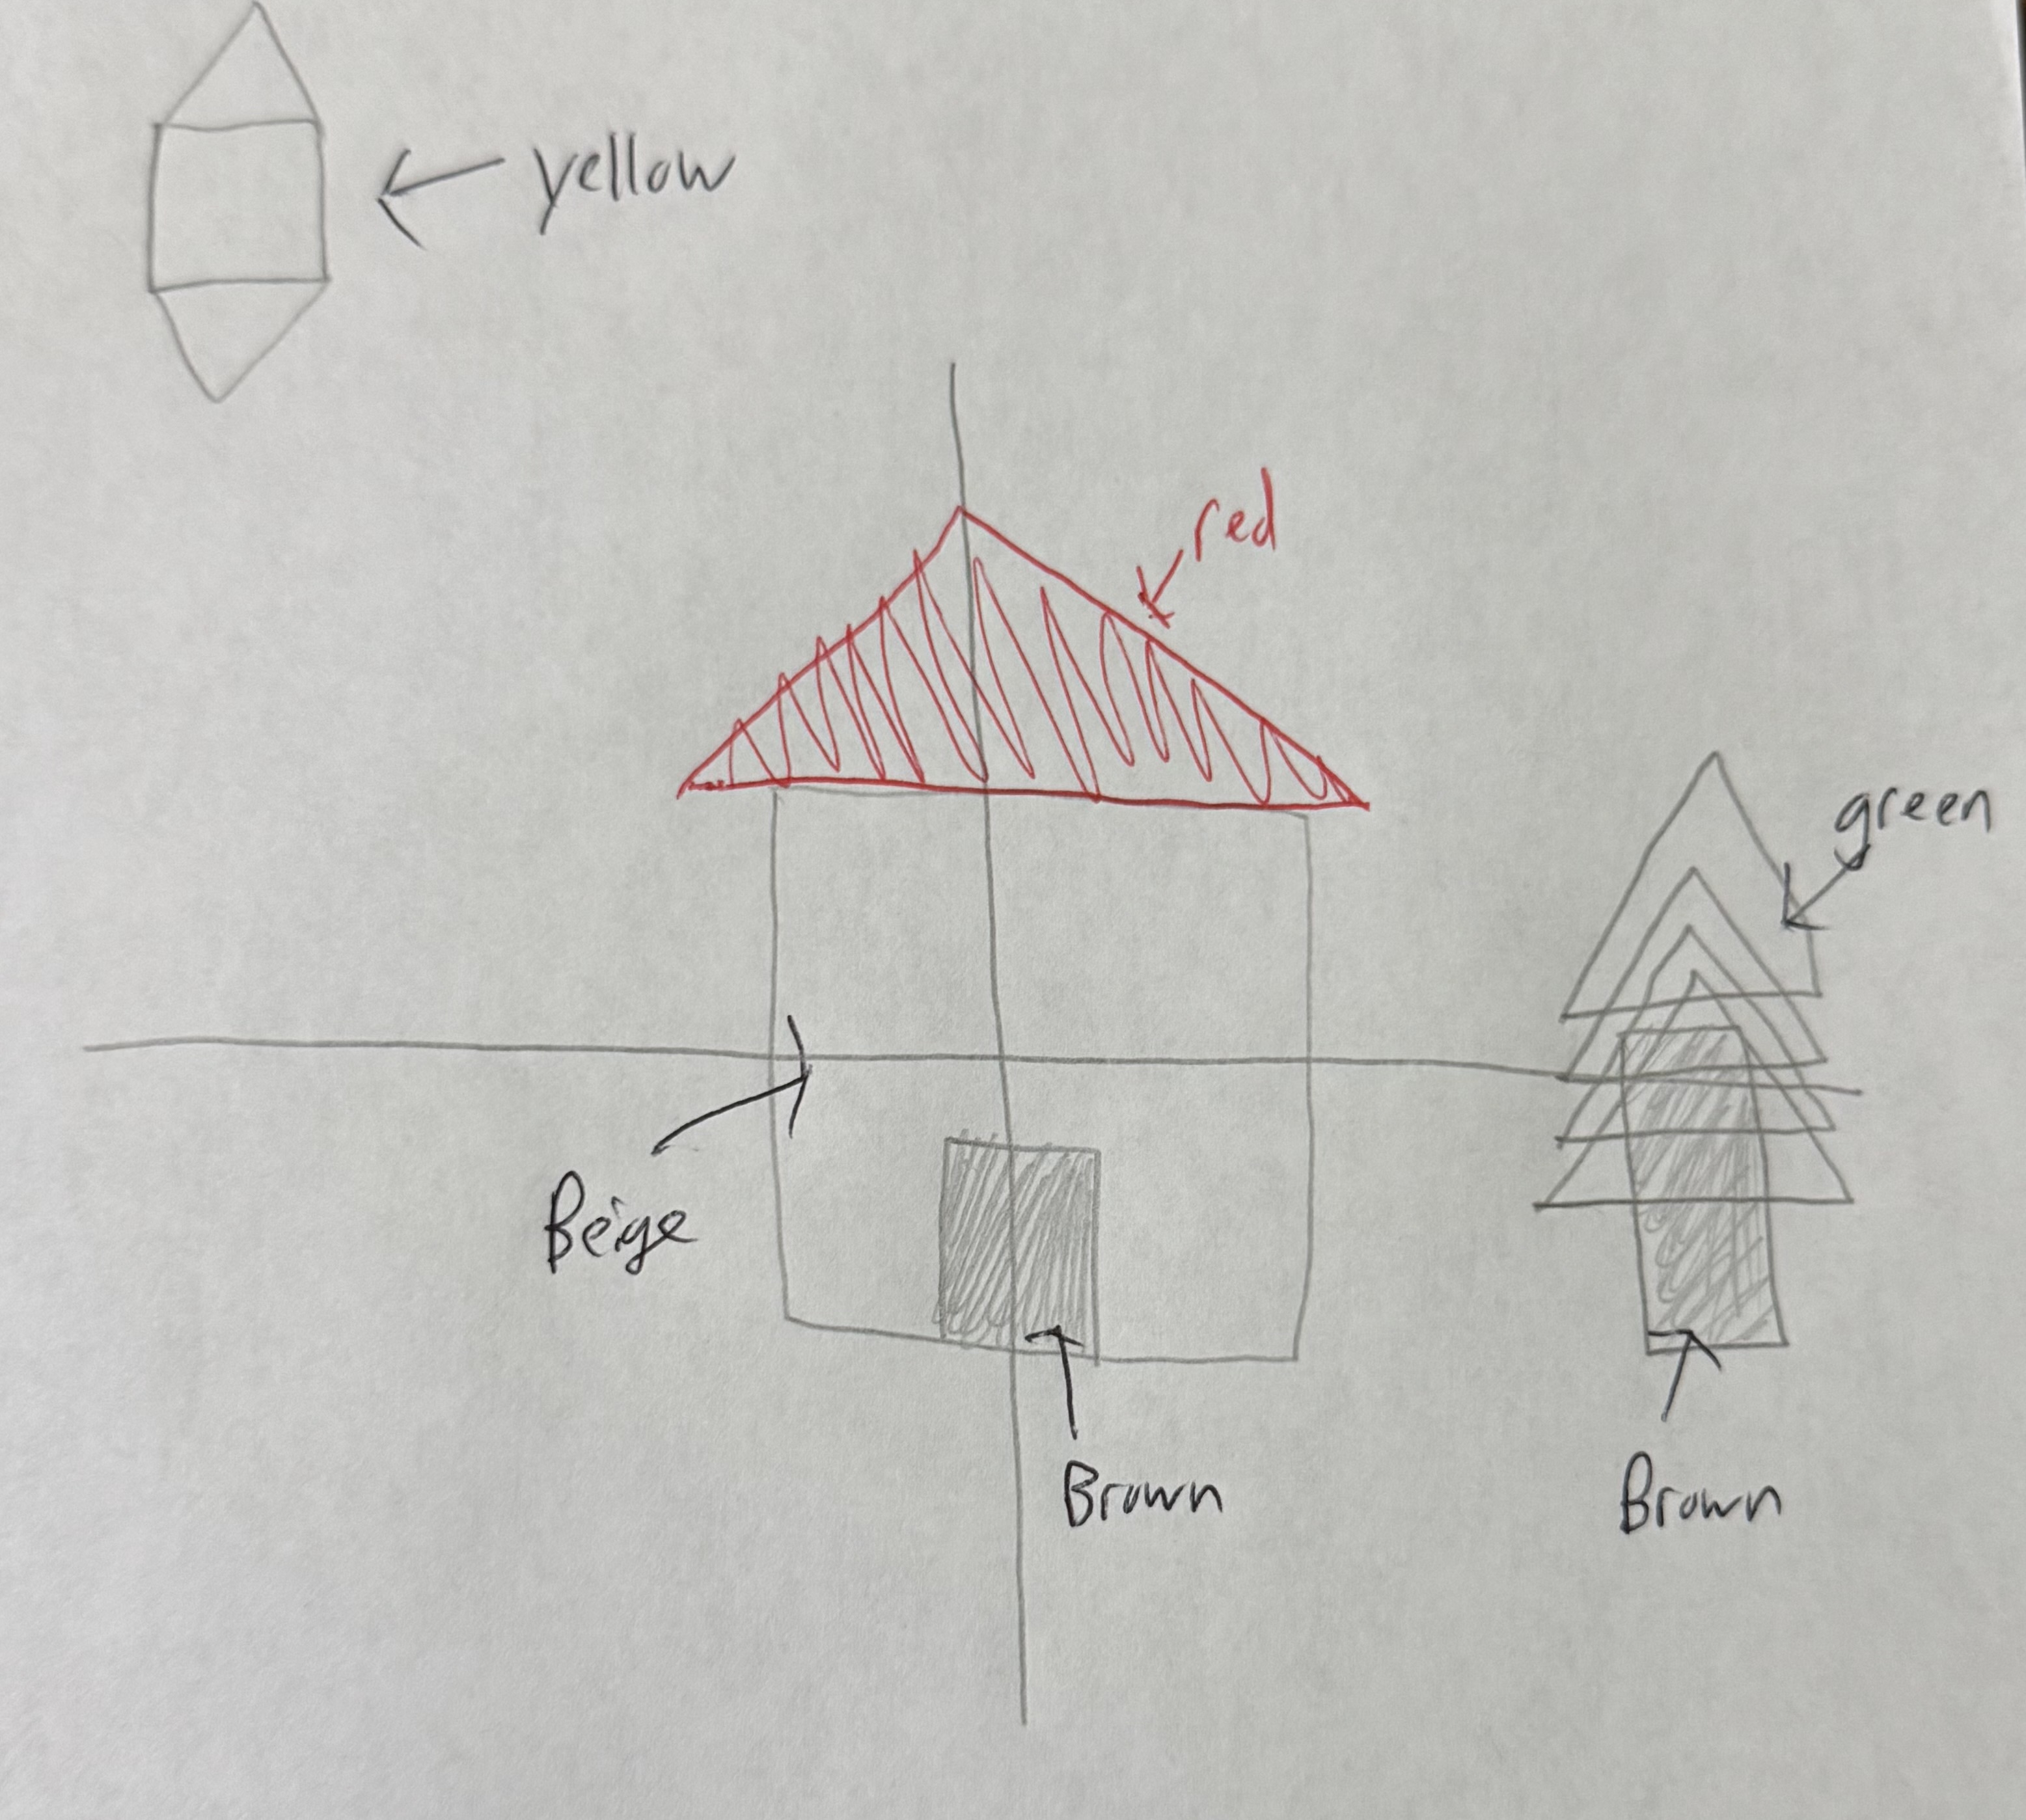 yellow
red
green
Beige
Brown
Brown